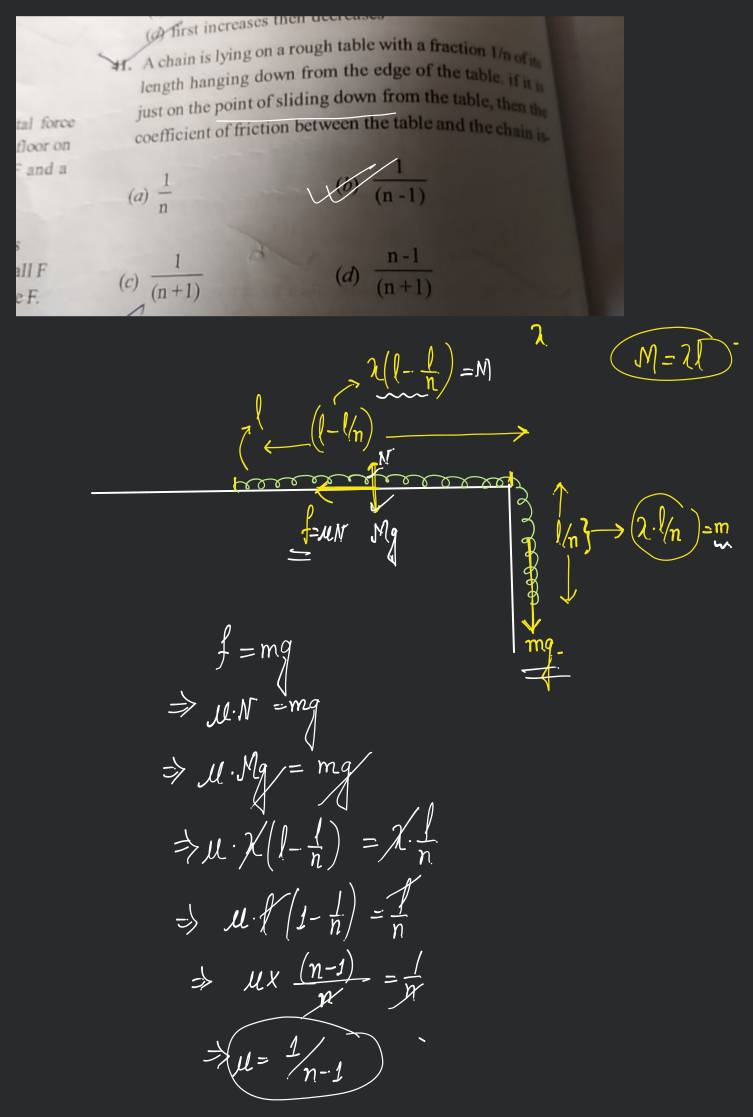 (d) first increases then decreases
41. A chain is lying on a rough table with a fraction 1/n of its
length hanging down from the edge of the table. if it is
just on the point of sliding down from the table, then the
coefficient of friction between the table and the chain is-
tal force
floor on
and a
(a) 1/n
(b) 1/(n-1)
all F
e F.
(c) 1/(n+1)
(d) n-1/(n+1)
λ
λ(l - l/n) = M
M = λl
l
(l - l/n)
N
f = μN
Mg
l/n} → λ·l/n = m
mg
f = mg
⇒ μ·N = mg
⇒ μ·Mg = mg
⇒ μ·λ(l - l/n) = λ·l/n
⇒ μ·l(1 - 1/n) = l/n
⇒ μ× (n-1)/n = 1/n
⇒ μ = 1/n-1